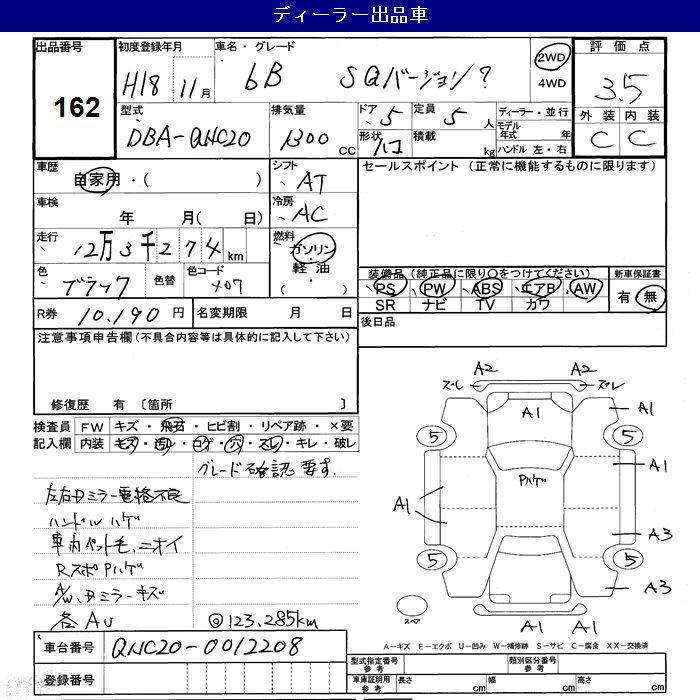 ディーラー出品車
出品番号
162
初度登録年月
H18 11月
車名・グレード
bB SQバージョン?
2WD
4WD
評価点
3.5
外装 内装
C C
型式
DBA-QNC20
排気量
1300 CC
ドア 5
形状 ハコ
定員 5人
積載 kg
ディーラー・並行
モデル年式 年
ハンドル 左・右
車歴
自家用・( )
シフト
AT
セールスポイント (正常に機能するものに限ります)
車検
年 月( 日)
冷房
AC
走行
12万3千274km
燃料
ガソリン
軽油
・( )
色
ブラック
色替
色コード
X07
装備品(純正品に限り○をつけてください)
PS PW ABS エアB AW
SR ナビ TV カワ
新車保証書
有・無
R券 10,190円
名変期限 月 日
後日品
注意事項申告欄(不具合内容等は具体的に記入して下さい)
修復歴 有 〔箇所 〕
検査員記入欄
FW キズ・飛石・ヒビ割・リペア跡・×要
内装 キズ・汚レ・コゲ・穴・スレ・キレ・破レ
グレード確認要す.
左右Dミラー電格不良
ハンドルハゲ
車内ペット毛、ニオイ
RスポPハゲ
A/W、Dミラーキズ
各AU
@123,285km
A2 A2
ズレ ズレ
A1 A1
5 5
Pハゲ
A1 A1
A3
5 5
A3
スペア
A1 A1
A-キズ E-エクボ U-凹み W-補修跡 S-サビ C-腐食 XX-交換済
車台番号 QNC20-0012208
登録番号
型式指定番号
類別区分番号
車庫証明用参考
長さ cm
幅 cm
高さ cm